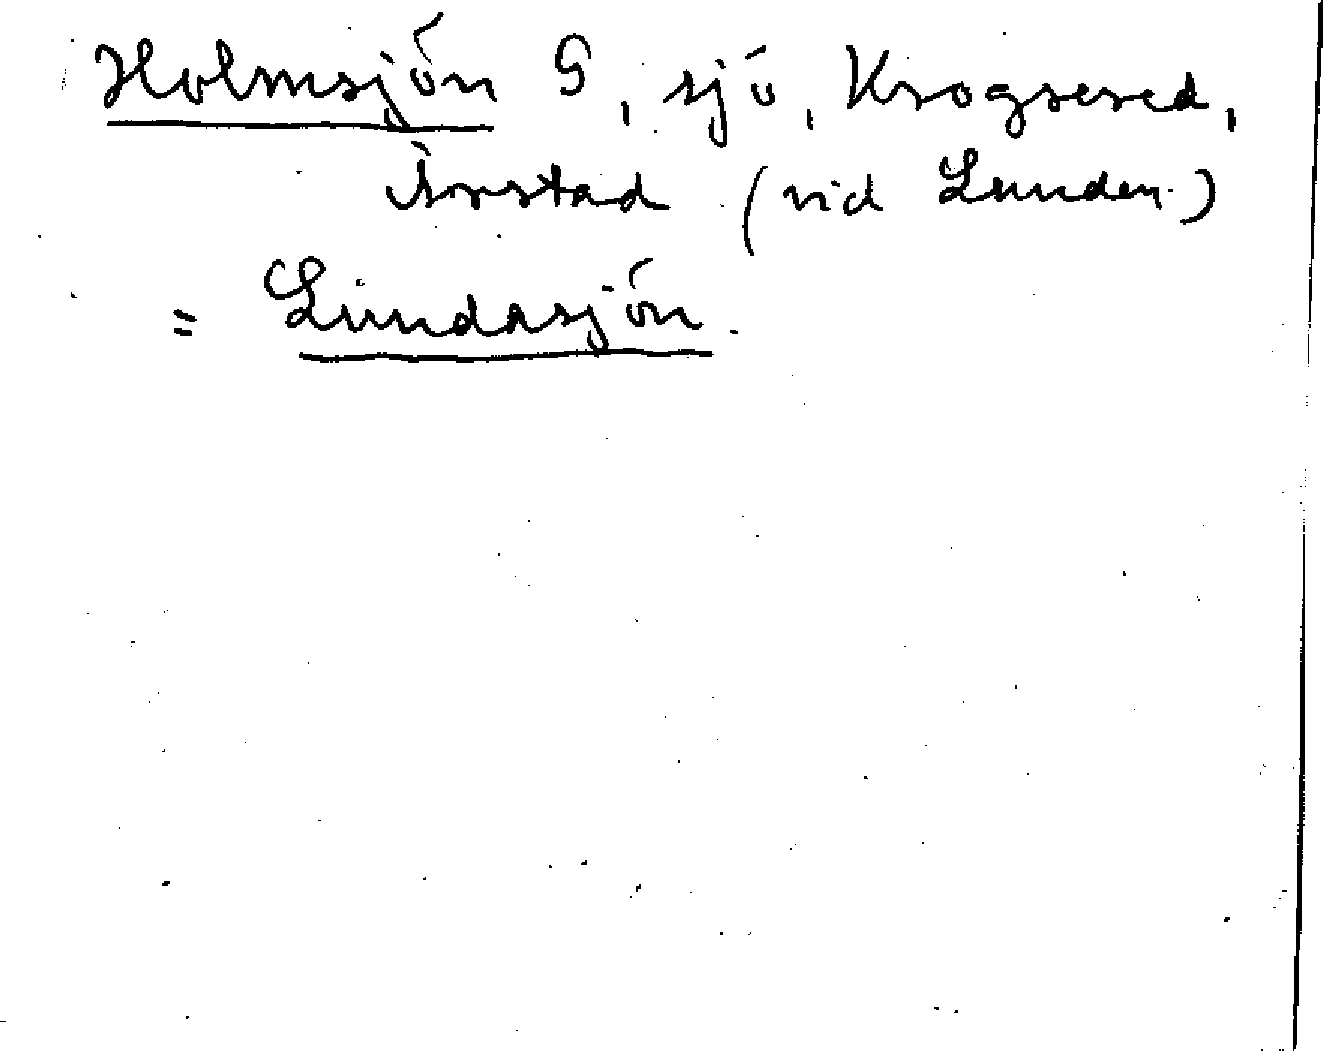 Holmsjön G, sjö, Krogsered,
Årstad (vid Lunden)
= Lundasjön.